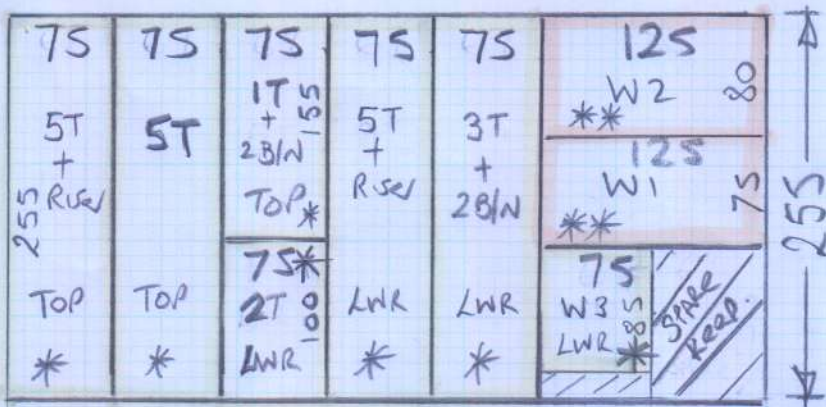 75
5T
+
Riser
255
TOP
*
75
5T
TOP
*
75
1T
+
2B/N
155
TOP *
75 *
2T
100
LWR
75
5T
+
Riser
LWR
*
75
3T
+
2B/N
LWR
*
125
W2
80
**
125
W1
75
**
75
W3
85
LWR *
SPARE
KEEP.
255